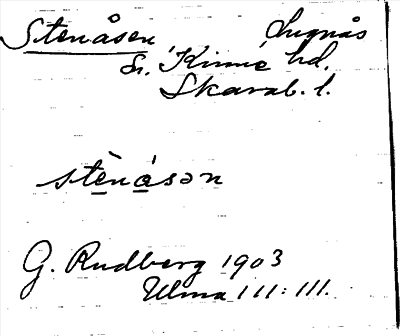 Stenåsen Lugnås
sn. Kinne hd.
Skarab. l.
stè̱ná̱sən
G. Rudberg 1903
Ulma 111:111.